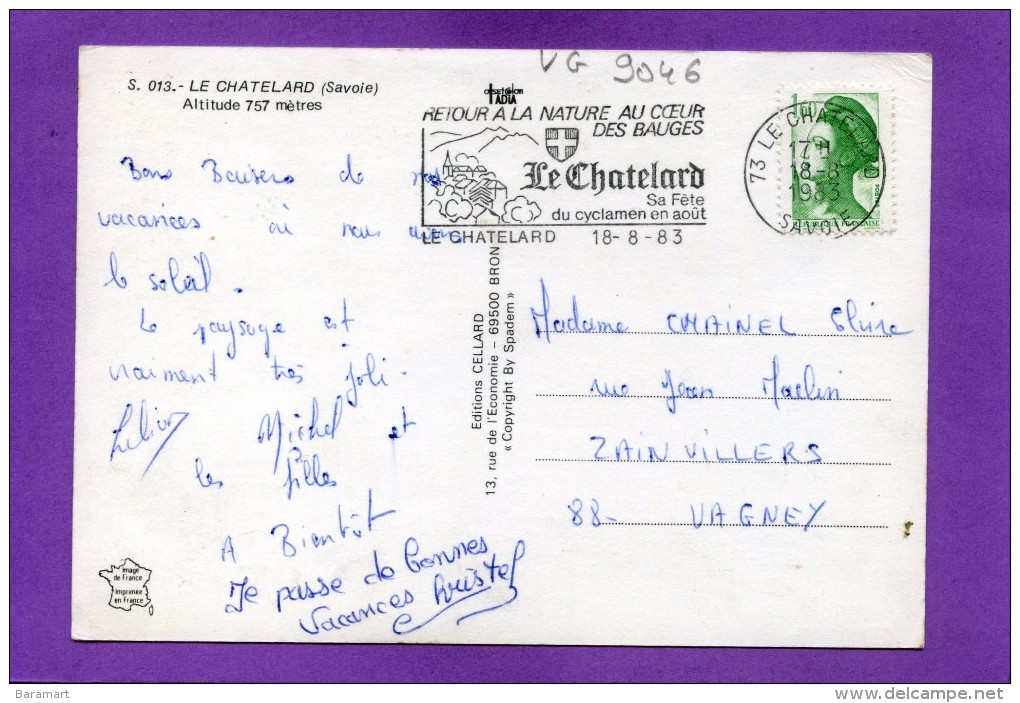 VG 9046
S. 013.- LE CHATELARD (Savoie)
Altitude 757 mètres
TADIA
RETOUR A LA NATURE AU CŒUR
DES BAUGES
Le Chatelard
Sa Fête
du cyclamen en août
LE CHATELARD 18-8-83
1,60
73 LE CHATELARD
17 H
18-8
1983
SAVOIE
REPUBLIQUE FRANÇAISE
Bons Baisers de nos
vacances où nous avons
le soleil.
Le paysage est
vraiment très joli.
Michel et
les filles
A Bientôt
Je passe de bonnes
vacances Christel
Editions CELLARD
13, rue de l'Economie – 69500 BRON
« Copyright By Spadem »
Madame CHAINEL
rue Jean Maclin
ZAINVILLERS
88- VAGNEY
Image
de France
Imprimée
en France
Baramart
www.delcampe.net